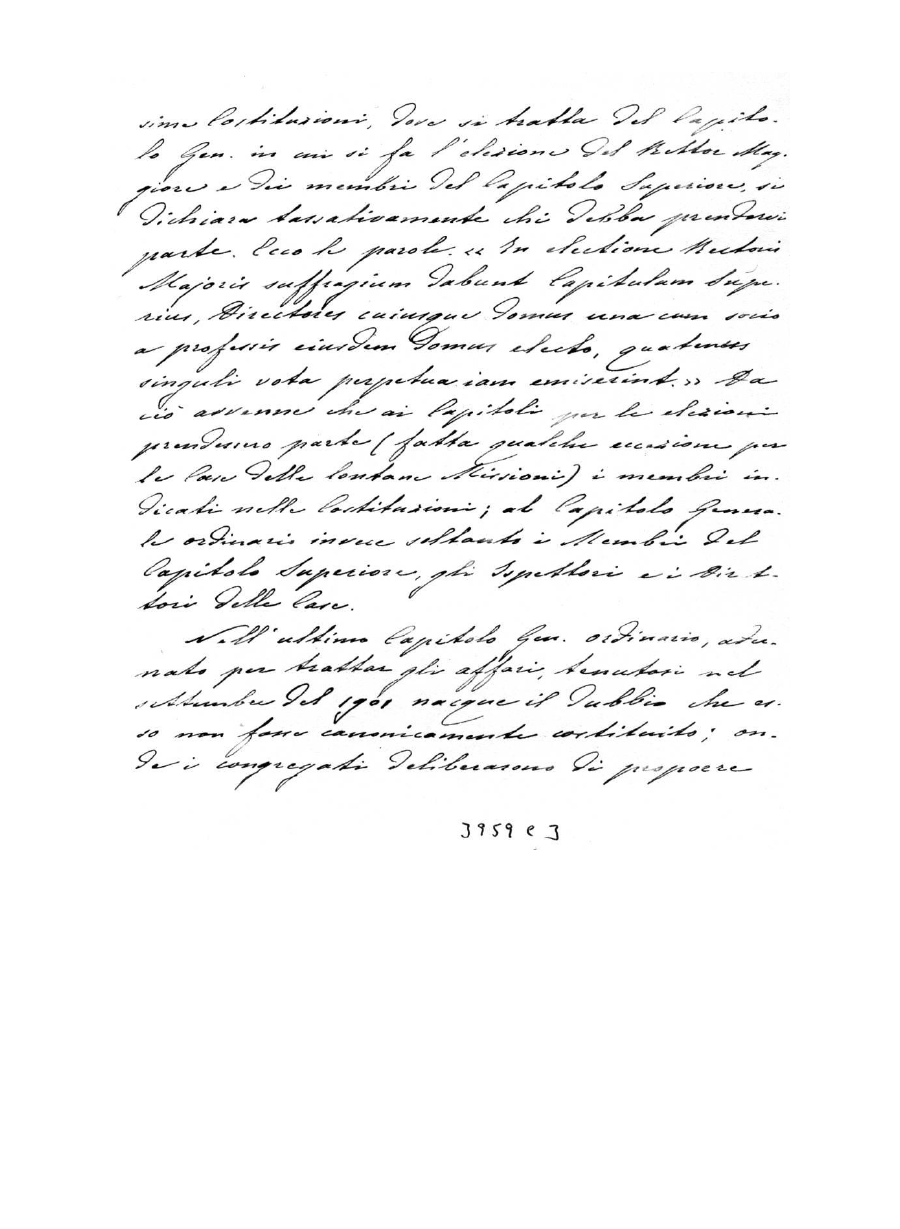 sime Costituzioni, dove si tratta del Capito-
lo Gen. in cui si fa l'elezione del Rettor Mag-
giore e dei membri del Capitolo Superiore, si
dichiara tassativamente chi debba prendervi
parte. Ecco le parole. « In electione Rectoris
Majoris suffragium dabunt Capitulum Supe-
rius, Directores cuiusque domus una cum socio
a professis eiusdem Domus electo, quatenus
singuli vota perpetua iam emiserint. » Da
ciò avvenne che ai Capitoli per le elezioni
prendessero parte ( fatta qualche eccezione per
le Case delle lontane Missioni) i membri in-
dicati nelle Costituzioni; al Capitolo Genera-
le ordinario invece soltanto i Membri del
Capitolo Superiore, gli Ispettori e i Diret-
tori delle Case.
Nell'ultimo Capitolo Gen. ordinario, adu-
nato per trattar gli affari, tenutosi nel
settembre del 1901 nacque il dubbio che es-
so non fosse canonicamente costituito; on-
de i congregati deliberarono di proporre
3959 C 3